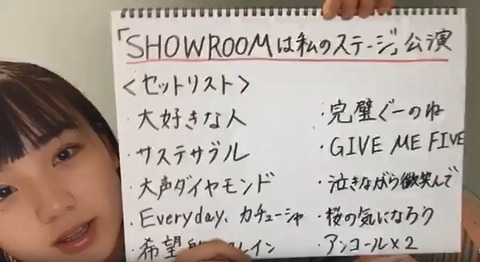 「SHOWROOMは私のステージ」公演
<セットリスト>
・大好きな人
・サステナブル
・大声ダイヤモンド
・Everyday、カチューシャ
・希望的 レイン
・完璧ぐーのね
・GIVE ME FIVE
・泣きながら微笑んで
・桜の気になろう
・アンコール×2